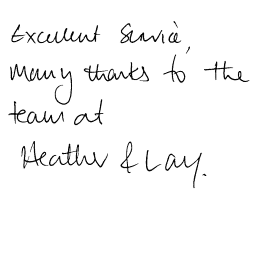 Excellent Service,
Many thanks to the
team at
Heather & Lay.